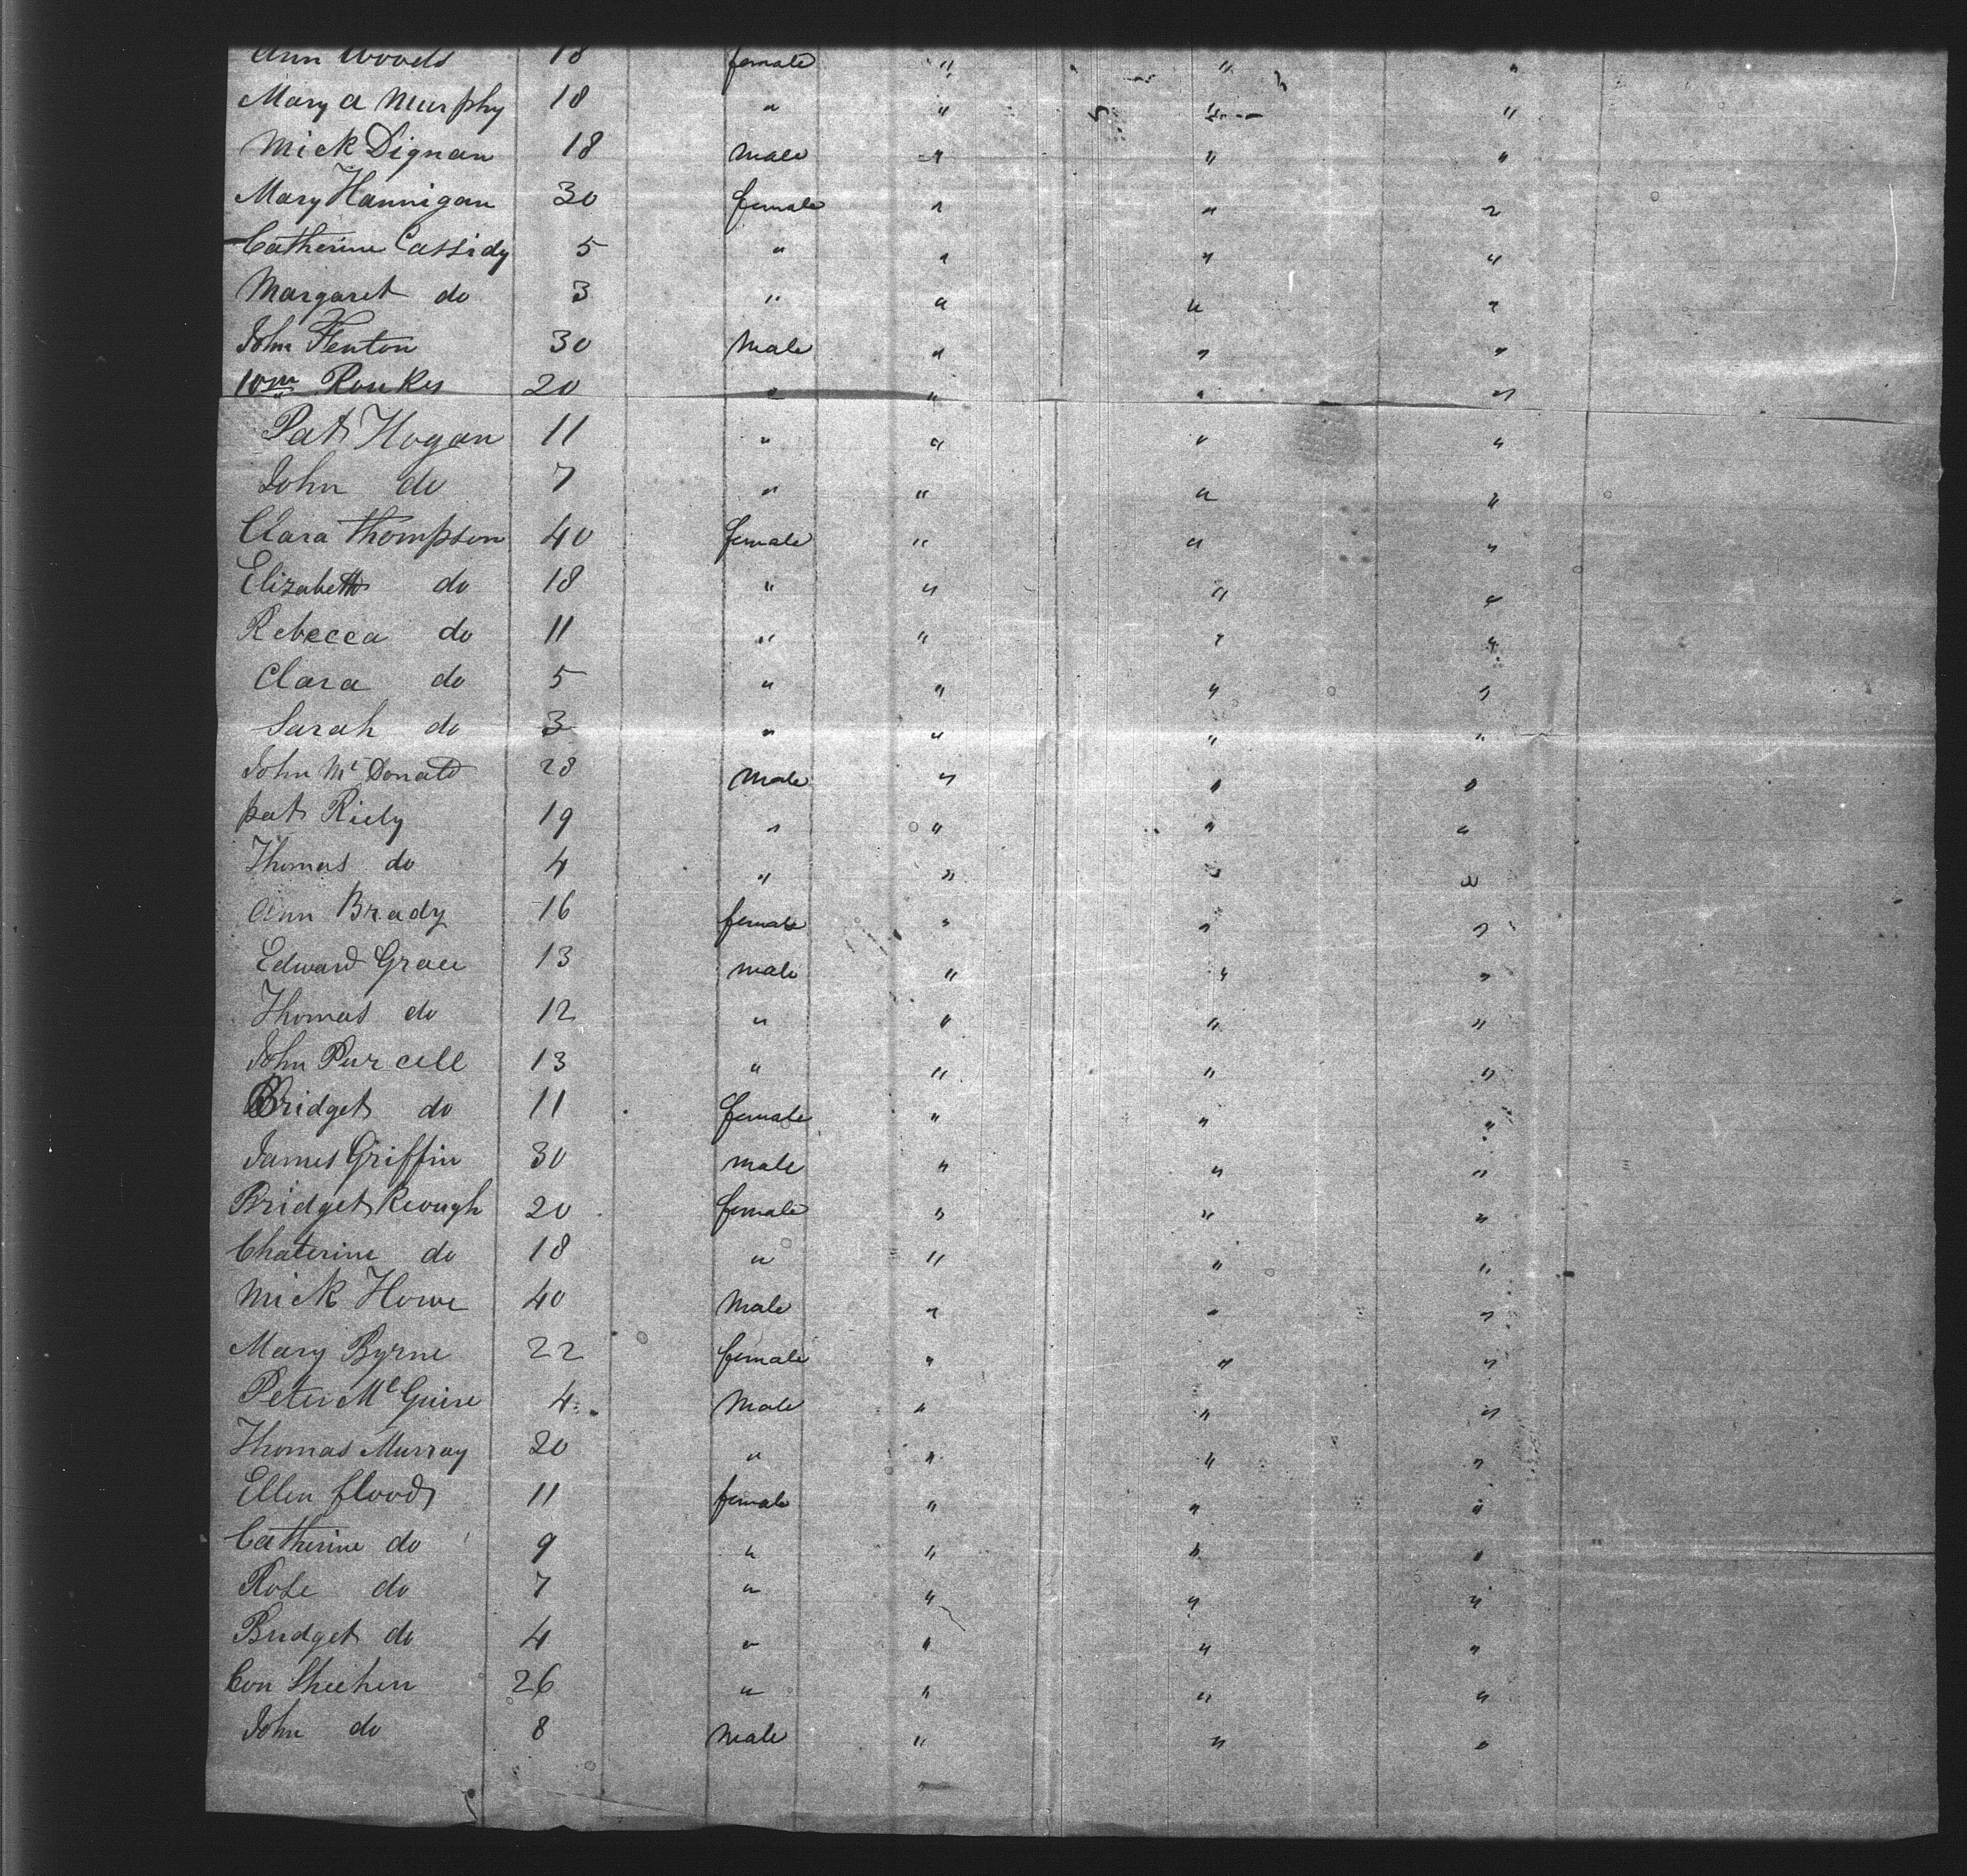 Ann Woods 18 female " " "
Mary A Murphy 18 " " " "
Mick Dignan 18 Male " " "
Mary Hannigan 30 female " " "
Catherine Cassidy 5 " " " "
Margaret do 3 " " " "
John Fenton 30 Male " " "
Wm Rourke 20 " " " "
Pat Hogan 11 " " " "
John do 7 " " " "
Clara Thompson 40 female " " "
Elizabeth do 18 " " " "
Rebecca do 11 " " " "
Clara do 5 " " " "
Sarah do 3 " " " "
John Mc Donald 28 Male " " "
pat Riely 19 " " " "
Thomas do 4 " " " "
Ann Brady 16 female " " "
Edward Grace 13 male " " "
Thomas do 12 " " " "
John Purcell 13 " " " "
Bridget do 11 female " " "
James Griffin 30 male " " "
Bridget Keough 20 female " " "
Chaterine do 18 " " " "
Mick Howe 40 Male " " "
Mary Byrne 22 female " " "
Peter Mc Guire 4 Male " " "
Thomas Murray 20 " " " "
Ellen flood 11 female " " "
Catherine do 9 " " " "
Rose do 7 " " " "
Bridget do 4 " " " "
Con Sheehen 26 " " " "
John do 8 Male " " "